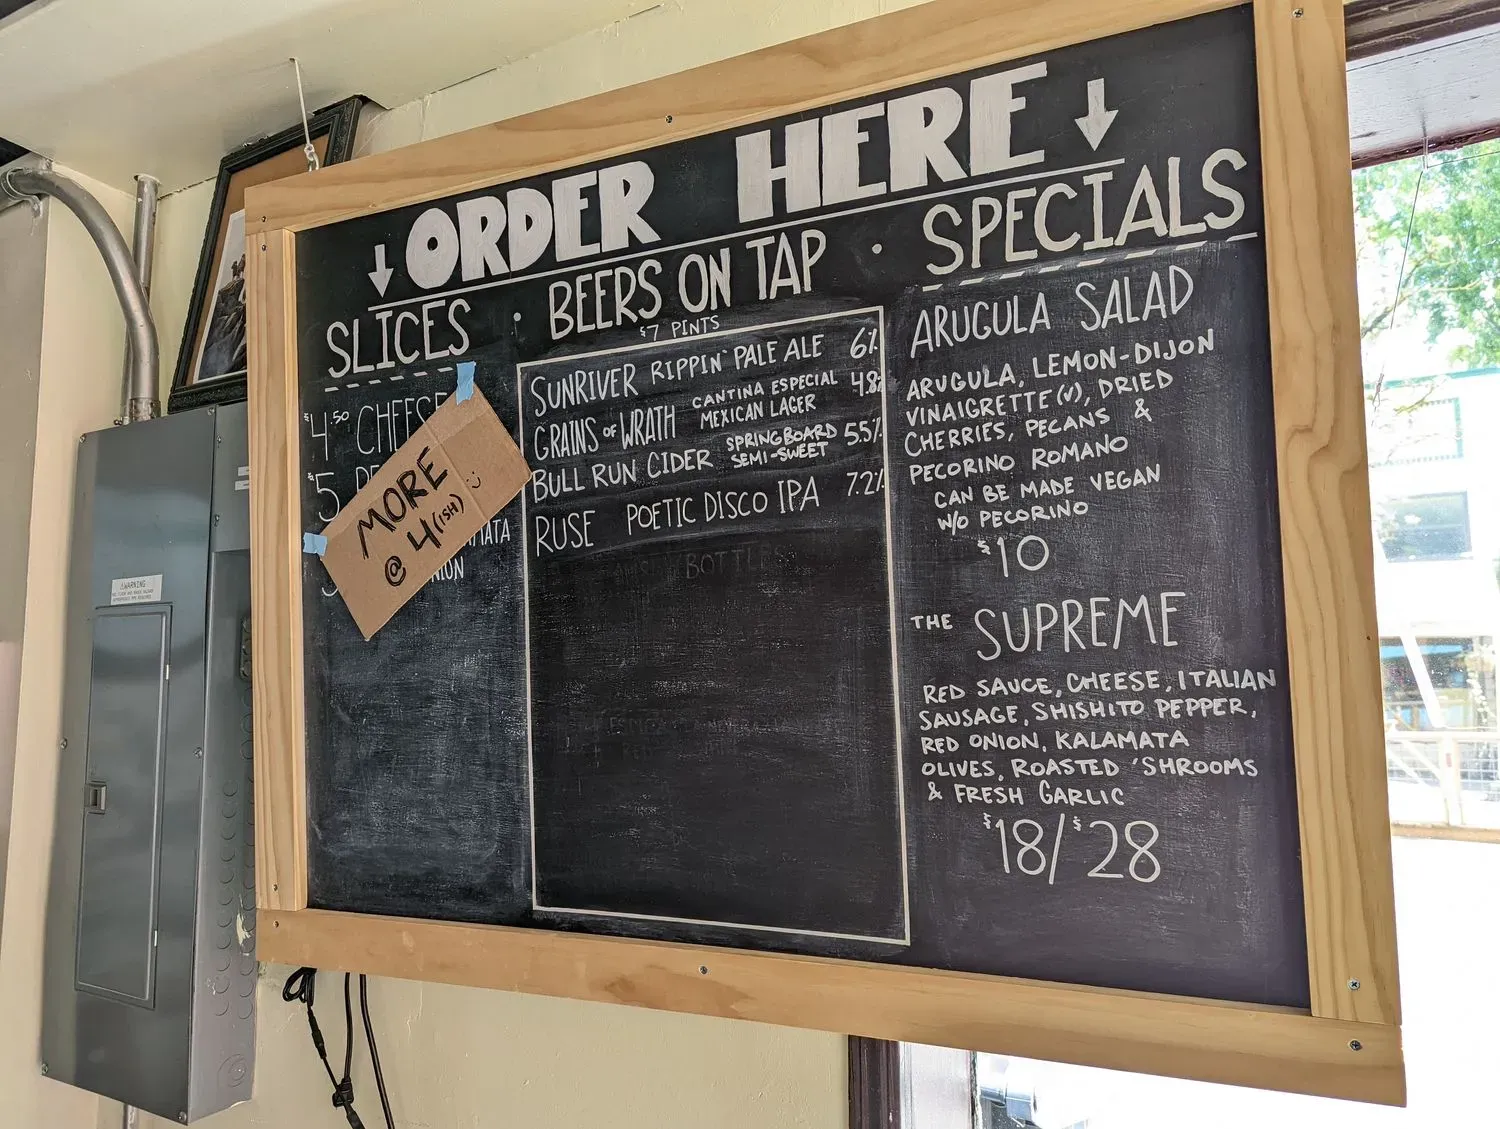 ↓ ORDER HERE ↓
SLICES · BEERS ON TAP · SPECIALS
$4.50 CHEESE
$5
MATA
NION
MORE
@ 4(ISH) :)
$7 PINTS
SUNRIVER RIPPIN' PALE ALE 6%
GRAINS OF WRATH CANTINA ESPECIAL MEXICAN LAGER 4.8%
BULL RUN CIDER SPRINGBOARD SEMI-SWEET 5.5%
RUSE POETIC DISCO IPA 7.2%
BOTTLES
ARUGULA SALAD
ARUGULA, LEMON-DIJON
VINAIGRETTE(V), DRIED
CHERRIES, PECANS &
PECORINO ROMANO
CAN BE MADE VEGAN
W/O PECORINO
$10
THE SUPREME
RED SAUCE, CHEESE, ITALIAN
SAUSAGE, SHISHITO PEPPER,
RED ONION, KALAMATA
OLIVES, ROASTED 'SHROOMS
& FRESH GARLIC
$18/$28
WARNING